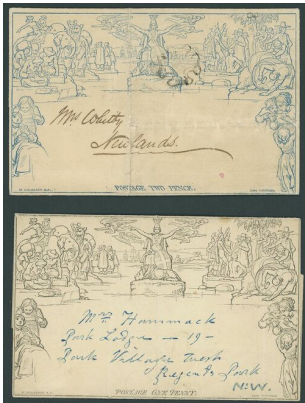 Newlands.
POSTAGE TWO PENCE.
Mrs Hammack
Park Lodge — 19 —
Park Village West
Regents Park
N.W.
POSTAGE ONE PENNY.